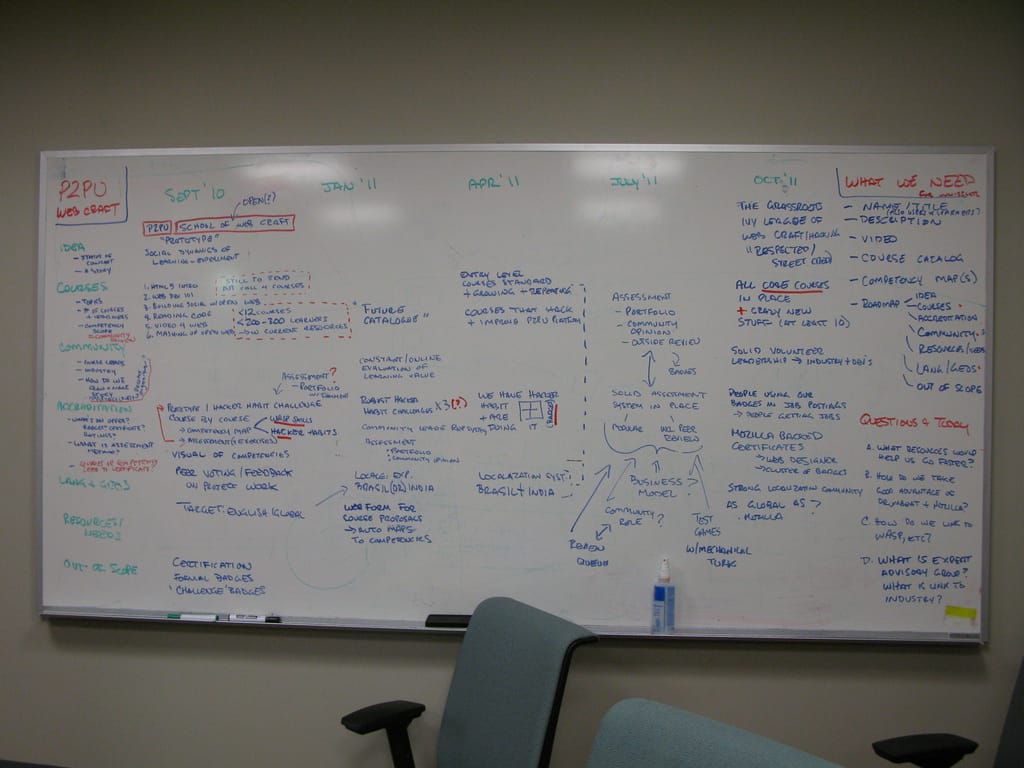 P2PU
WEB CRAFT
SEPT '10
JAN '11
APR '11
JULY '11
OCT '11
WHAT WE NEED
IDEA
- A STORY
COURSES
- TOPICS
- COMPETENCY
COMMUNITY
- COURSE LEADS
- INDUSTRY
- HOW DO WE
ACCREDITATION
- WHAT'S ON OFFER?
- WHAT IS ASSESSMENT
LANG & GEOS
RESOURCES/
NEEDS
OUT OF SCOPE
OPEN(?)
P2PU SCHOOL OF WEB CRAFT
"PROTOTYPE"
SOCIAL DYNAMICS OF
LEARNING - EXPERIMENT
1. HTML5 INTRO
2. WEB DEV 101
3. BUILDING SOCIAL W/ OPEN WEB
4. READING CODE
5. VIDEO & WEB
6. MASHING UP OPEN WEB
STILL TO SEND
OUT CALL 4 COURSES
<12 COURSES
<200-300 LEARNERS
→ W/ CURRENT RESOURCES
ASSESSMENT?
- PORTFOLIO
PROTOTYPE 1 HACKER HABIT CHALLENGE
COURSE BY COURSE
→ COMPETENCY MAP
→ ASSESSMENT (& EXERCISES)
WEB SKILLS
HACKER HABITS
VISUAL OF COMPETENCIES
PEER VOTING/FEEDBACK
ON PROJECT WORK
TARGET: ENGLISH/GLOBAL
CERTIFICATION
FORMAL BADGES
'CHALLENGE' BADGES
"FUTURE
CATALOGUE"
CONSTANT/ONLINE
EVALUATION OF
LEARNING VALUE
ROBUST HACKER
HABIT CHALLENGES X3(?)
COMMUNITY LEADS REPOSITORY
ASSESSMENT
- PORTFOLIO
- COMMUNITY OPINION
LOCALE: EXP.
BRASIL (OR) INDIA
WEB FORM FOR
COURSE PROPOSALS
→ AUTO MAPS
TO COMPETENCIES
ENTRY LEVEL
COURSES STANDARD
+ GROWING + REPEATING
COURSES THAT HACK
+ IMPROVE P2PU PLATFORM
WE HAVE HACKER
HABIT
+ ARE
DOING IT
(BADGES)
LOCALIZATION SYST.
BRASIL + INDIA
ASSESSMENT
- PORTFOLIO
- COMMUNITY
OPINION
- OUTSIDE REVIEW
BADGES
SOLID ASSESSMENT
SYSTEM IN PLACE
MODULAR
PEER
REVIEW
BUSINESS
MODEL?
COMMUNITY
ROLE?
REVIEW
QUEUE
TEST
GAMES
W/MECHANICAL
TURK
THE GRASSROOTS
IVY LEAGUE OF
WEB CRAFT/HACKING
"RESPECTED/
STREET CRED"
ALL CORE COURSES
IN PLACE
+ CRAZY NEW
STUFF (AT LEAST 10)
SOLID VOLUNTEER
LEADERSHIP → INDUSTRY + ORGS
PEOPLE USING OUR
BADGES IN JOB POSTINGS
→ PEOPLE GETTING JOBS
MOZILLA BACKED
CERTIFICATES
→ WEB DESIGNER
→ CLUSTER OF BADGES
STRONG LOCALIZATION COMMUNITY
AS GLOBAL AS
MOZILLA
- NAME/TITLE
- DESCRIPTION
- VIDEO
- COURSE CATALOG
- COMPETENCY MAP(S)
- ROADMAP
IDEA
COURSES
ACCREDITATION
COMMUNITY
RESOURCES/NEEDS
LANG/GEOS
OUT OF SCOPE
QUESTIONS 4 TODAY
A. WHAT RESOURCES WOULD
HELP US GO FASTER?
B. HOW DO WE TAKE
GOOD ADVANTAGE OF
DRUMBEAT + MOZILLA?
C. HOW DO WE LINK TO
WASP, ETC?
D. WHAT IS EXPERT
ADVISORY GROUP?
WHAT IS LINK TO
INDUSTRY?